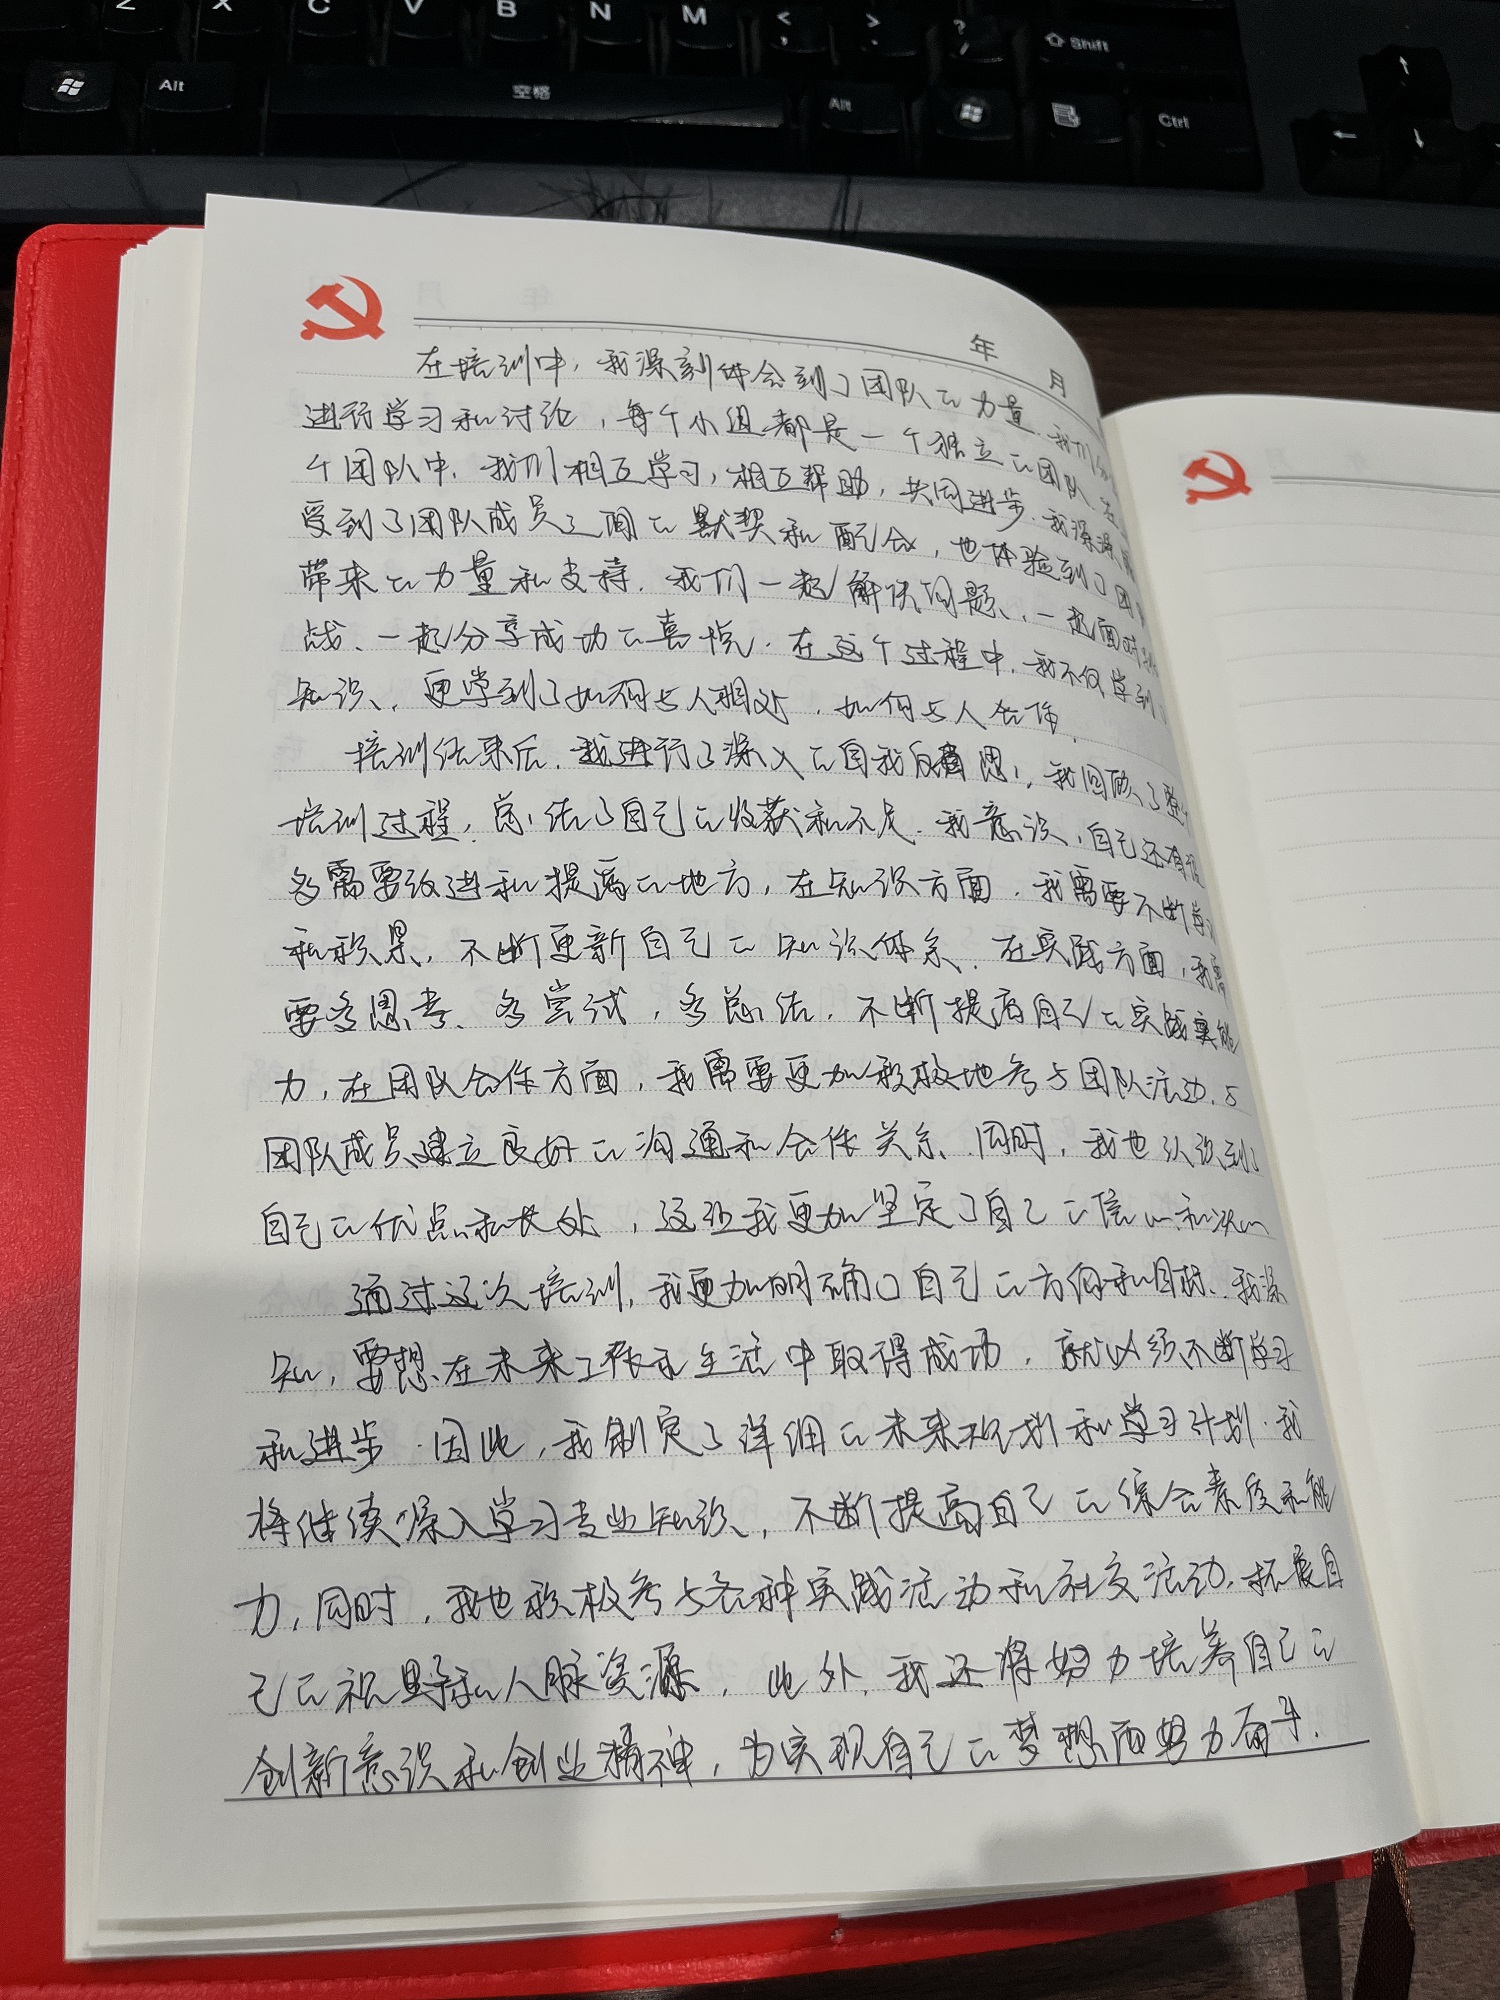 Z X C V B N M < , > . ? / Shift
Alt 空格 Alt Ctrl
年 月
在培训中，我深刻体会到了团队的力量．我们分
进行学习和讨论，每个小组都是一个独立的团队．在
个团队中．我们相互学习，相互帮助，共同进步．我深深
受到了团队成员之间的默契和配合，也体验到了团
带来的力量和支持．我们一起解决问题、一起面对
战、一起分享成功的喜悦．在这个过程中．我不仅学到
知识、更学到了如何与人相处．如何与人合作．
培训结束后．我进行了深入的自我反省思，我回顾了整个
培训过程，总结了自己的收获和不足．我意识，自己还有
多需要改进和提高的地方，在知识方面．我需要不断学
和积累，不断更新自己的知识体系．在实践方面，我需
要多思考、多尝试，多总结．不断提高自己的实践能
力，在团队合作方面，我需要更加积极地参与团队活动．与
团队成员建立良好的沟通和合作关系．同时，我也认识到
自己的优点和长处，这让我更加坚定了自己的信心和决心
通过这次培训，我更加明确了自己的方向和目标．我深
知，要想在未来工作和生活中取得成功，就必须不断学习
和进步．因此，我制定了详细的未来规划和学习计划．我
将继续深入学习专业知识，不断提高自己的综合素质和能
力，同时，我也积极参与各种实践活动和社交活动，拓展自
己的视野和人脉资源，此外，我还将努力培养自己的
创新意识和创业精神，为实现自己的梦想而努力奋斗．